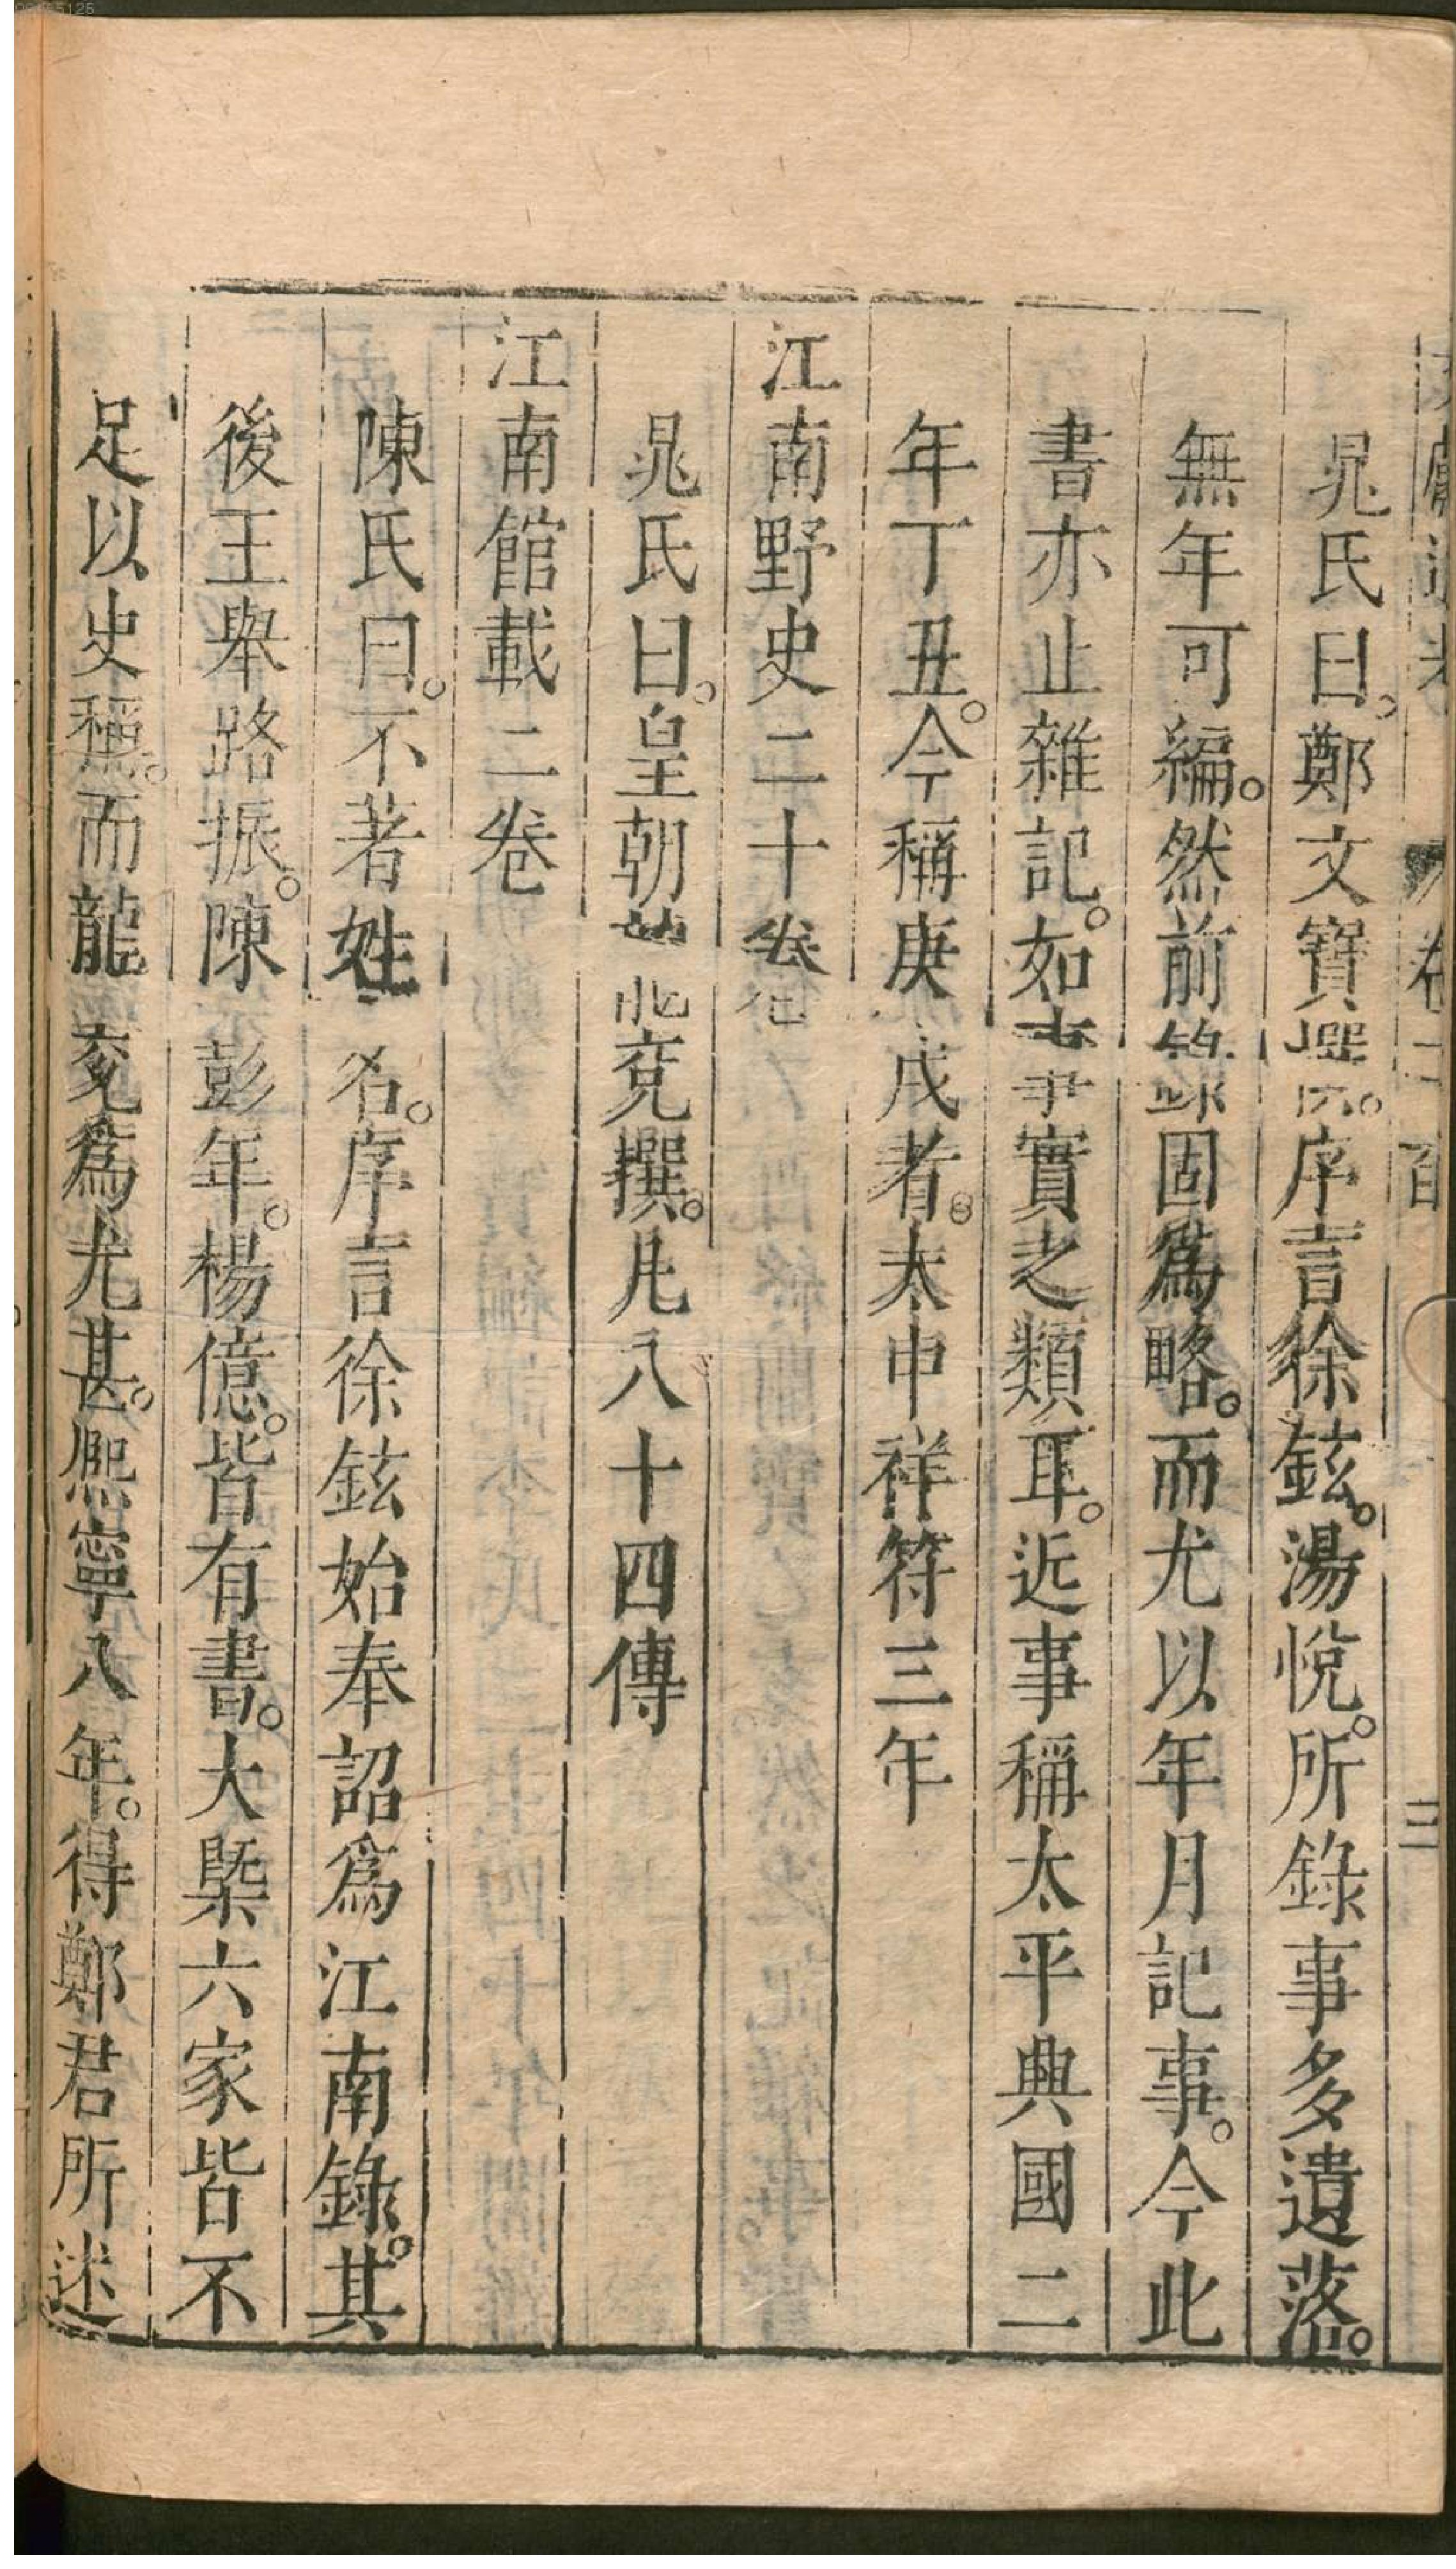 晁氏曰。鄭文寶撰。序言徐鉉。湯悅。所錄事多遺落。
無年可編。然前錄固爲略。而尤以年月記事。今此
書亦止雜記。如事實之類耳。近事稱太平興國二
年丁丑。今稱庚戌者。太中祥符三年
江南野史二十卷
晁氏曰。皇朝撰。凡八十四傳
江南館載二卷
陳氏曰。不著姓名。序言徐鉉始奉詔爲江南錄。其
後王舉路振。陳彭年。楊億。皆有書。大槩六家皆不
足以史稱。而龍衮爲尤甚。熈寧八年。得鄭君所述